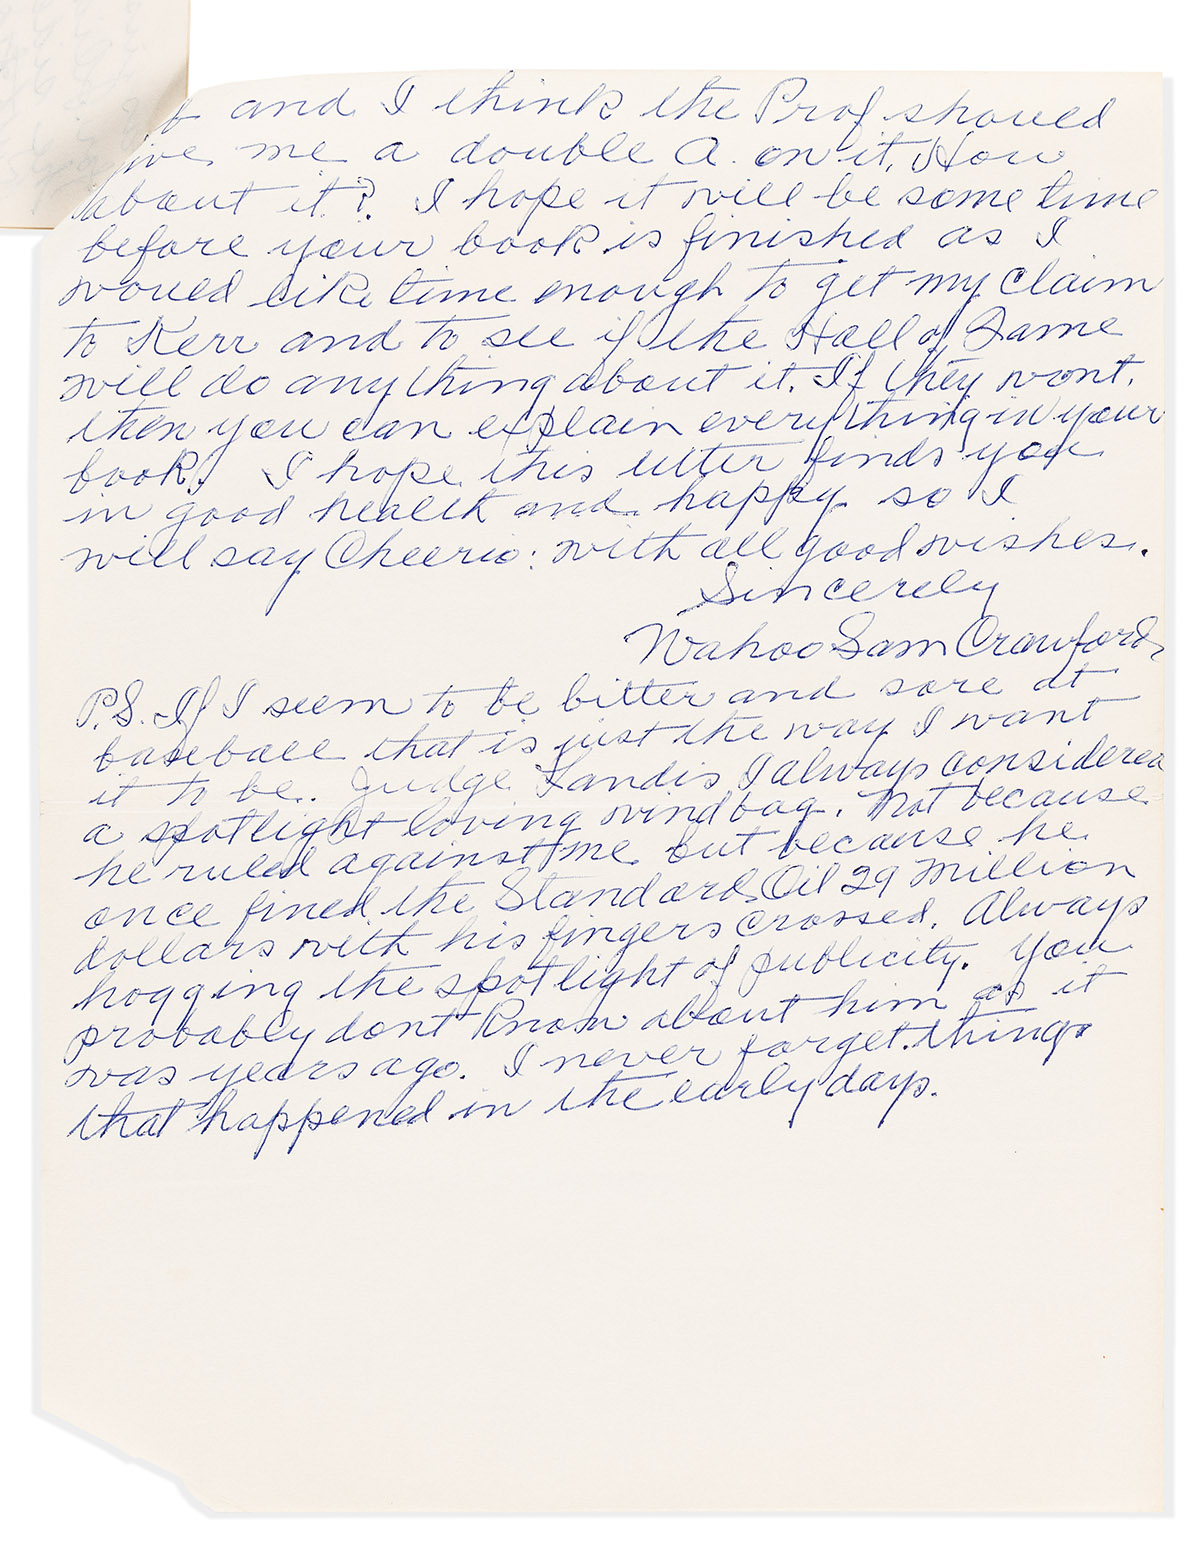 and I think the Prof should
me a double A. on it. How
about it?. I hope it will be some time
before your book is finished as I
would like time enough to get my claim
to Kerr and to see if the Hall of Fame
will do anything about it. If they wont.
then you can explain everything in your
book. I hope this letter finds you
in good health and happy so I
will say Cheerio: with all good wishes.
Sincerely
Wahoo Sam Crawford
P.S. If I seem to be bitter and sore at
baseball that is just the way I want
it to be. Judge Landis I always considered
a spotlight loving windbag. Not because
he ruled against me but because he
once fined the Standard Oil 29 Million
dollars with his fingers crossed. Always
hogging the spotlight of publicity. You
probably dont know about him as it
was years ago. I never forget things
that happened in the early days.